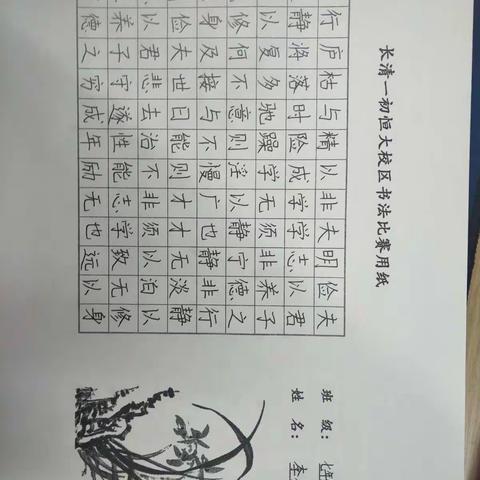 长清一初恒大校区书法比赛用纸
班级：七年
姓名：李
夫君子之行静以修身
俭以养德非淡泊无以
明志非宁静无以致远
大学须静也才须学也
非学无以广才非志无
以成学淫慢则不能励
精险躁则不能治性年
与时驰意与日去遂成
枯落多不接世悲守穷
庐将复何及夫君子之
行静以修身俭以养德